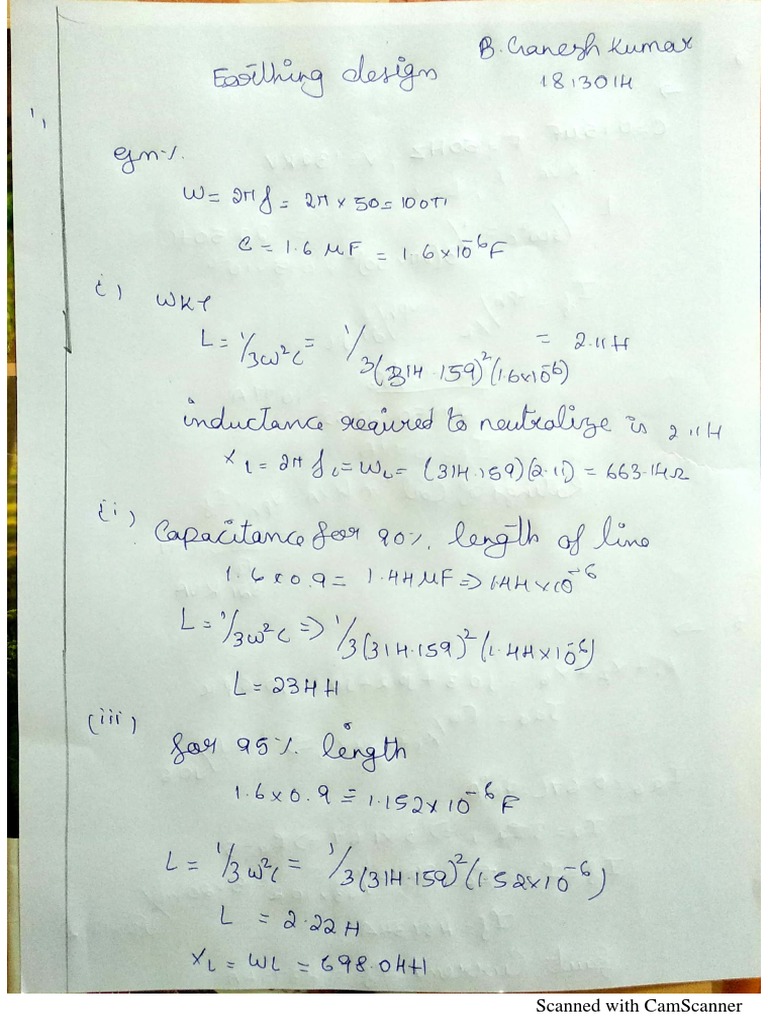 B. Ganesh Kumar
Earthing design
1813014
1,
gn:-
W = 2πf = 2π x 50 = 100π
C = 1.6 MF = 1.6x10⁻⁶F
i) WKT
L = 1/3ω²C = 1/3(314.159)²(1.6x10⁻⁶) = 2.11H
inductance required to neutralize is 2.11H
XL = 2πfL = WL = (314.159)(2.11) = 663.14Ω
ii) Capacitance for 90%. length of line
1.6 x 0.9 = 1.44 MF => 1.44 x 10⁻⁶
L = 1/3ω²C => 1/3(314.159)²(1.44x10⁻⁶)
L = 234H
(iii) for 95%. length
1.6 x 0.9 = 1.152 x 10⁻⁶ F
L = 1/3ω²C = 1/3(314.159)²(1.52x10⁻⁶)
L = 2.22H
XL = WL = 698.04H
Scanned with CamScanner